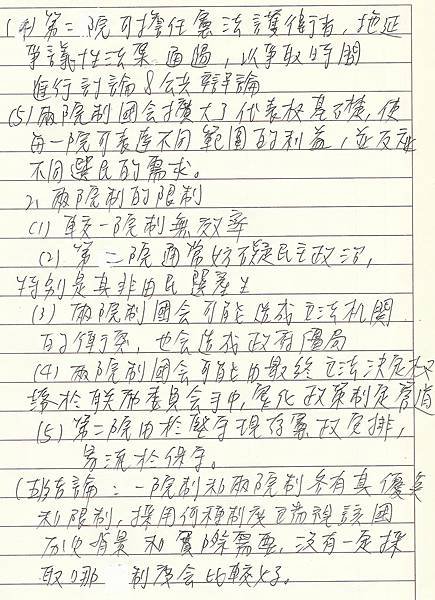 (4)第二院可擔任憲法護衛者,拖延
爭議性法案通過,以爭取時間
進行討論&公共辯論
(5)兩院制國會擴大了代表權基礎,使
每一院可表達不同範圍的利益,並反應
不同選民的需求。
2、兩院制的限制
(1)較一院制無效率
(2)第二院通常妨礙民主政治,
特別是其非由民選產生
(3)兩院制國會可能造成立法机關
的衝突,也會造成政府僵局
(4)兩院制國會可能由最終立法決定权
歸於联合委員會手中,窄化政策制定管道
(5)第二院由於堅守現存憲政安排,
易流於保守。
結論:一院制和兩院制各有其優真
和限制,採用何種制度端視該國
历史背景和實際需要,沒有一定採
取哪 制度會比較好。